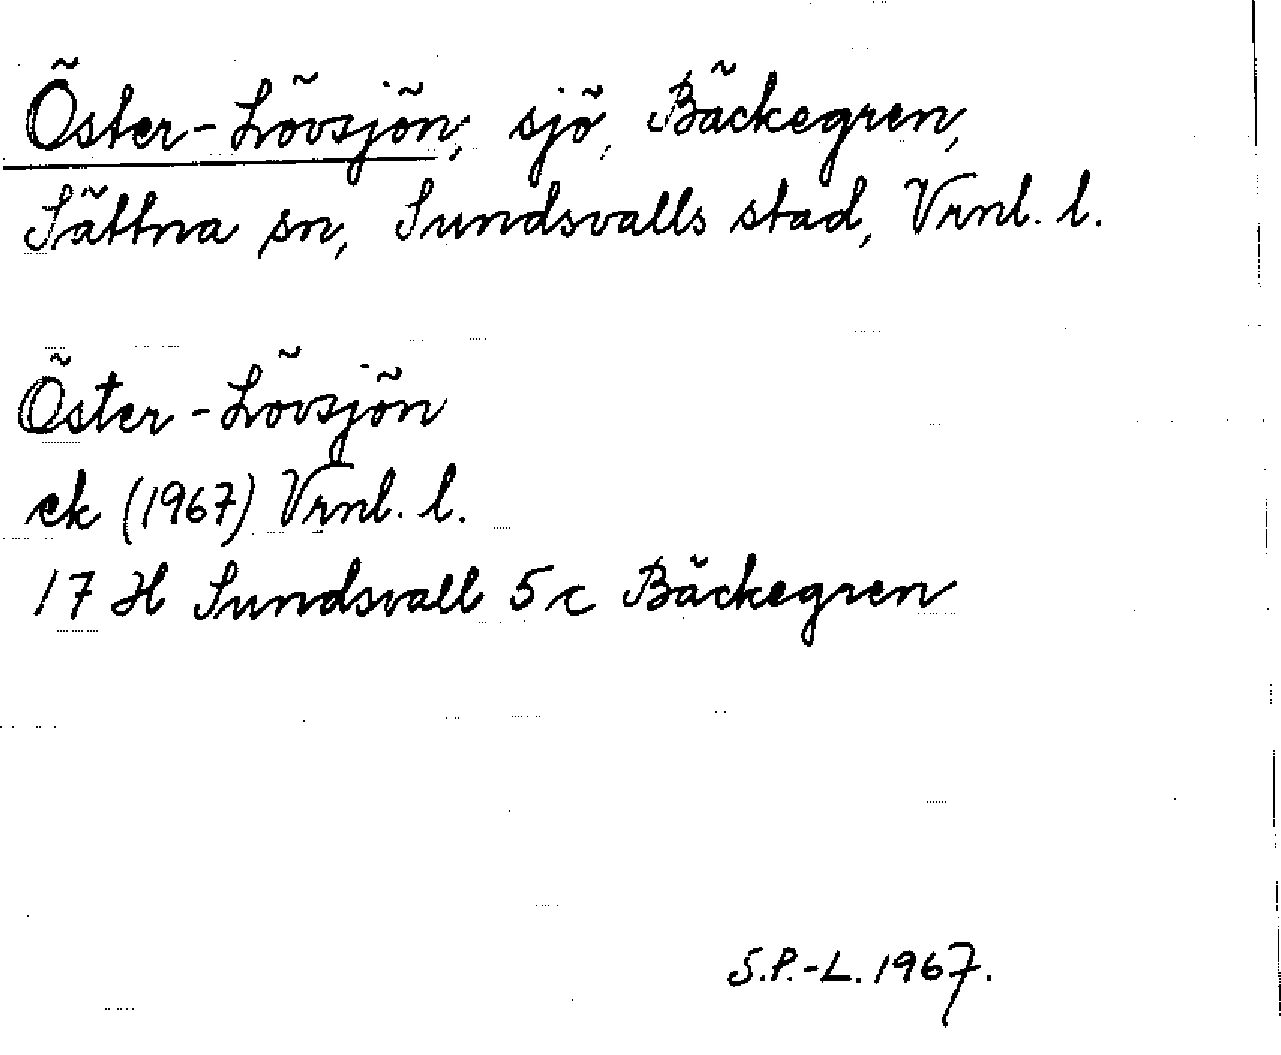 Öster-Lövsjön, sjö, Bäckegren,
Sättna sn, Sundsvalls stad, Vrnl. l.
Öster-Lövsjön
ek (1967) Vrnl. l.
17 H Sundsvall 5c Bäckegren
S.P.-L. 1967.